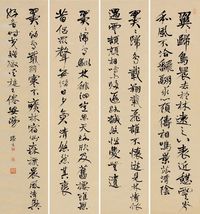 翼〻歸鳥晨去於林遠之八表近憩雲岑
和風不洽翻翮求心顧儔相鳴景庇清陰
翼〻歸鳥載翔載飛雖不懷游見林情依
遇雲頡頏相鳴而歸遐路誠悠性愛無遺
翼〻歸鳥馴林徘徊豈思天路欣及舊棲雖無
昔侶眾聲每諧日夕氣清悠然其懷
翼〻歸鳥戢羽寒條游不曠林宿則森標晨風清興
好音時交矰繳奚施已卷安勞